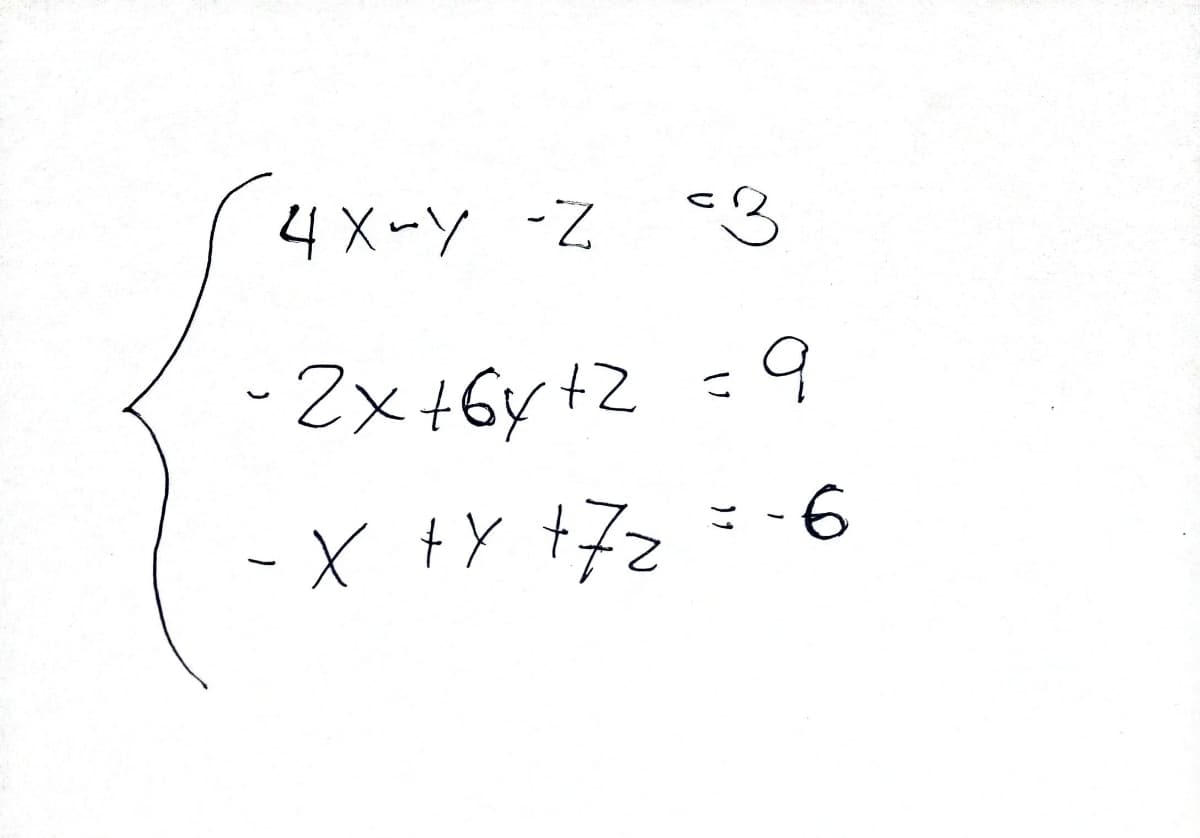 4x-y -z =3
-2x+6y+z =9
-x +y +7z =-6